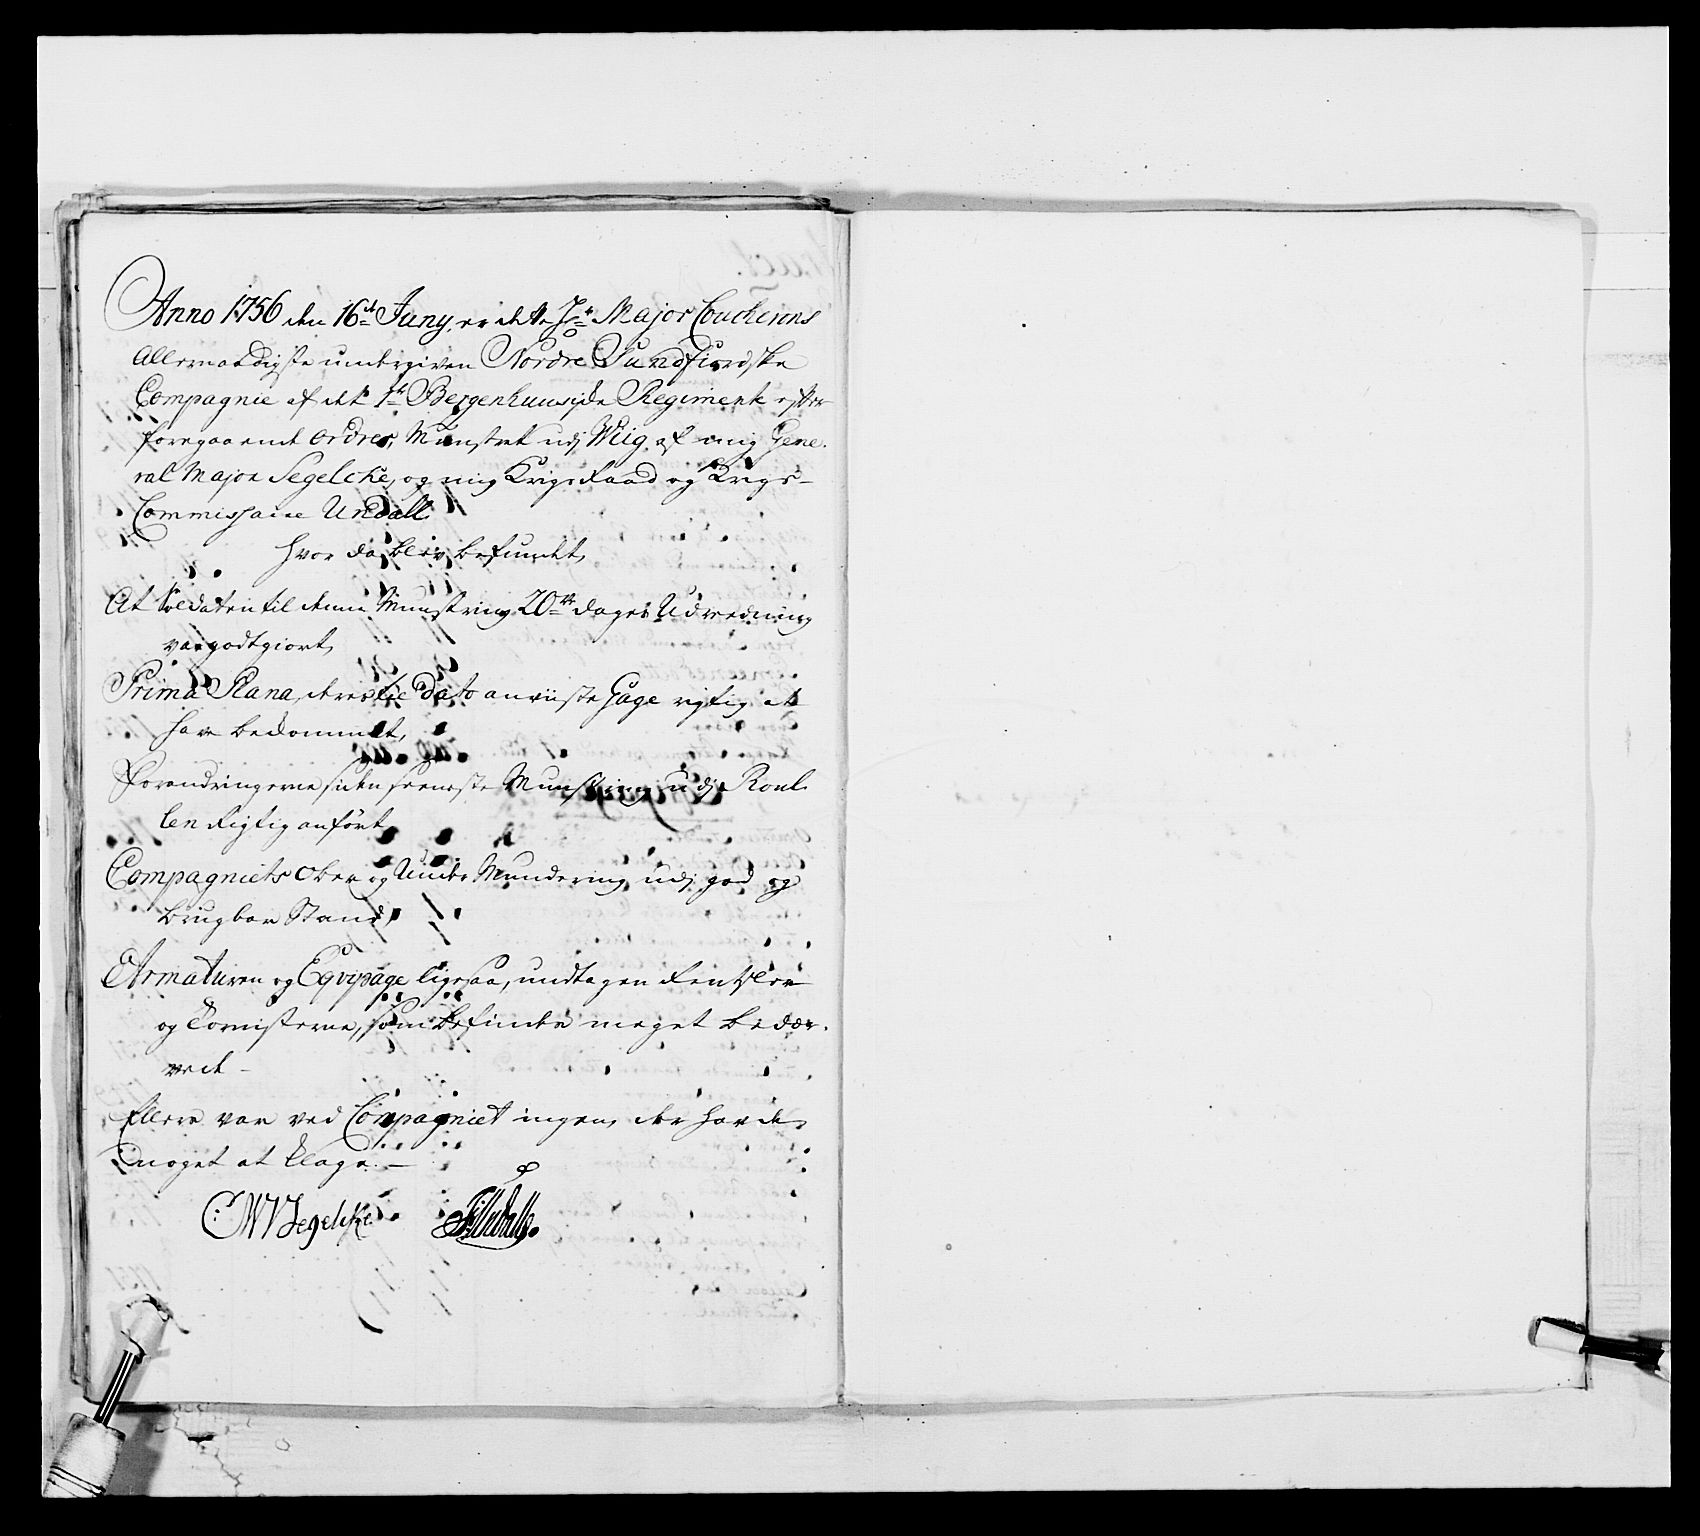 Anno 1756 den 16de Juny, er dette Hr Major Coucherons
Allernaadigste undergiven Nordre Sundfiordske
Compagnie af det 1te Bergenhuusiske Regimente efter
foregaaende Ordres, Mynstret udj Wiig af mig Gene-
ral Major Segelcke, og mig Krigs Raad og Krigs-
Commissaire Undall
hvor da blev befundet,
At Soldaten til denne Mynstring 20ve dages Udredning
var godtgiort,
Prima Plana, deres til Dato anviiste Gage rigtig at
have bekommet,
Forandringerne siden seeneste Mynstring udj Roul-
len Rigtig anført
Compagniets Ober og Under Mundering udj god og
brugbar Stand,
Armaturen og Eqvipage ligesaa, undtagen
og Tornisterne, som befindes meget bedær-
vede -
Ellers var ved Compagniet ingen, der havde
noget at klage. -
C: W V Segelcke Undall.